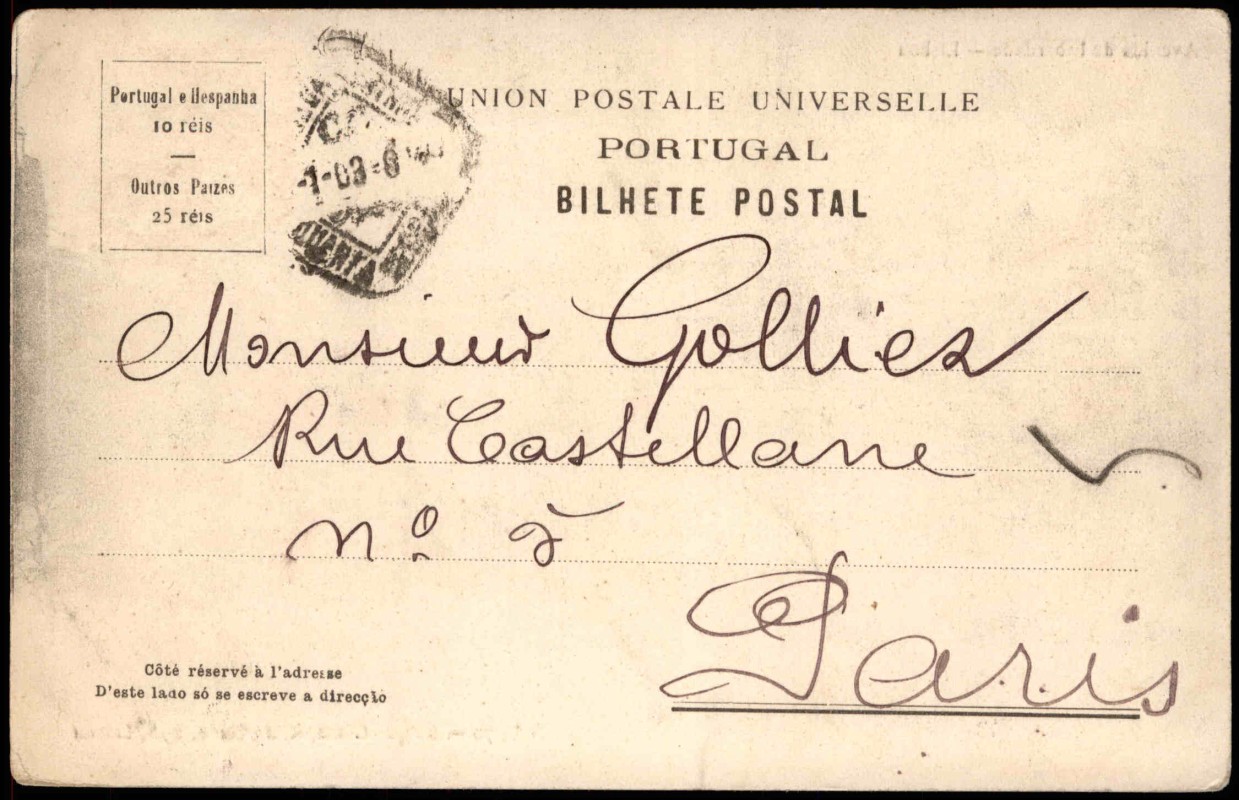 Portugal e Hespanha
10 réis
Outros Paizes
25 réis
UNION POSTALE UNIVERSELLE
PORTUGAL
BILHETE POSTAL
1-03-6
QUARTA
Monsieur Golliez
Rue Castellane
Nº 5
Paris
Côté réservé à l'adresse
D'este lado só se escreve a direcção